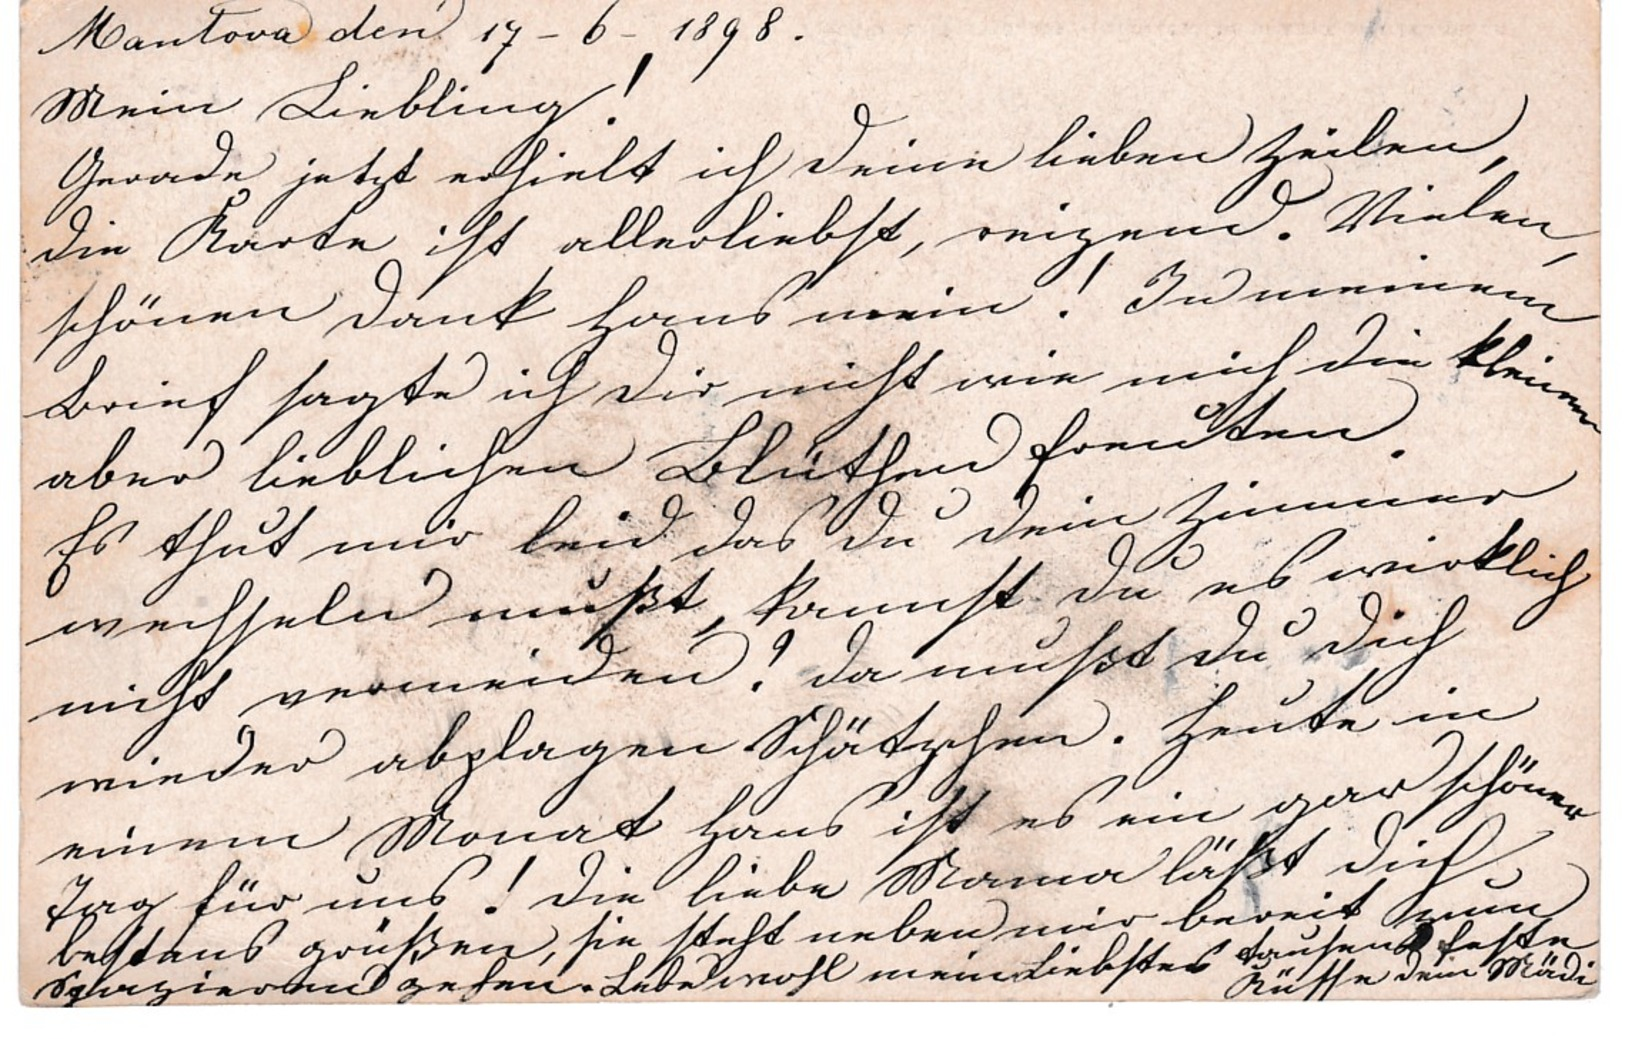 Mantova den 17-6-1898.
Mein Liebling!
Gerade jetzt erhielt ich Deine lieben Zeilen,
die Karte ist allerliebst, reizend. Vielen,
schönen Dank Hans mein! In meinem
Brief sagte ich Dir nicht wie mich die kleinen
aber lieblichen Blüthen freuten.
Es thut mir leid das Du Dein Zimmer
wechseln mußt, kannst Du es wirklich
nicht vermeiden? Da mußt Du Dich
wieder abplagen Schätzchen. Heute in
einem Monat Hans ist es ein gar schöner
Tag für uns! Die liebe Mama läßt Dich
bestens grüßen, sie steht neben mir bereit zum
Spazieren gehen. Lebe wohl mein Liebstes tausend feste
Küsse Dein Mädi